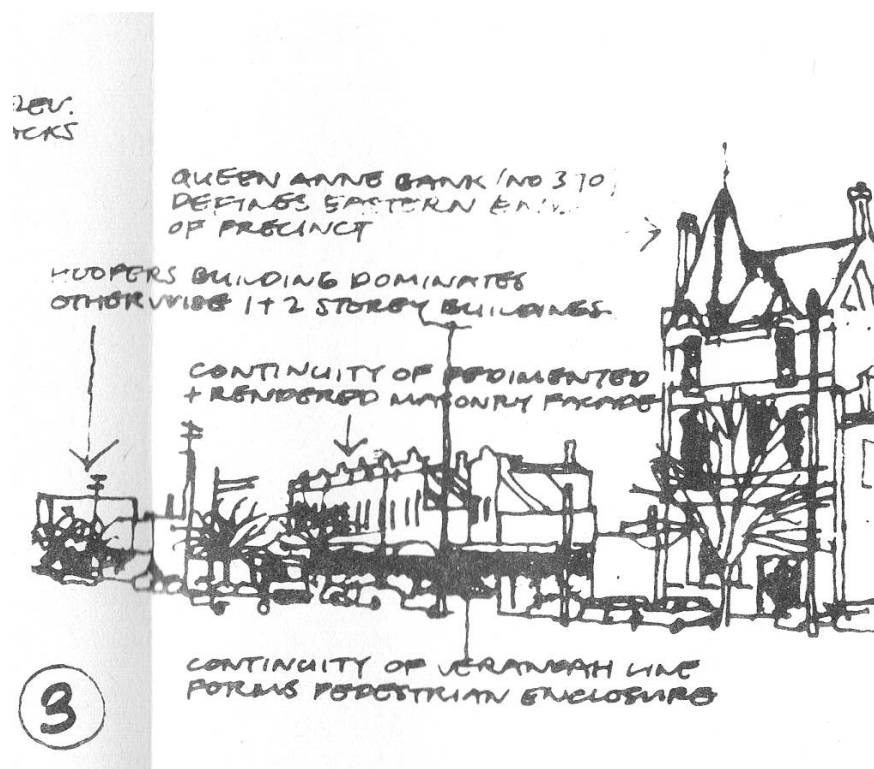 QUEEN ANNE BANK (NO 370)
DEFINES EASTERN
OF PRECINCT
HOOPERS BUILDING DOMINATES
OTHERWISE 1+2 STOREY BUILDINGS
CONTINUITY OF PEDIMENTED
+ RENDERED MASONRY FACADE
CONTINUITY OF VERANDAH LINE
FORMS PEDESTRIAN ENCLOSURE
3